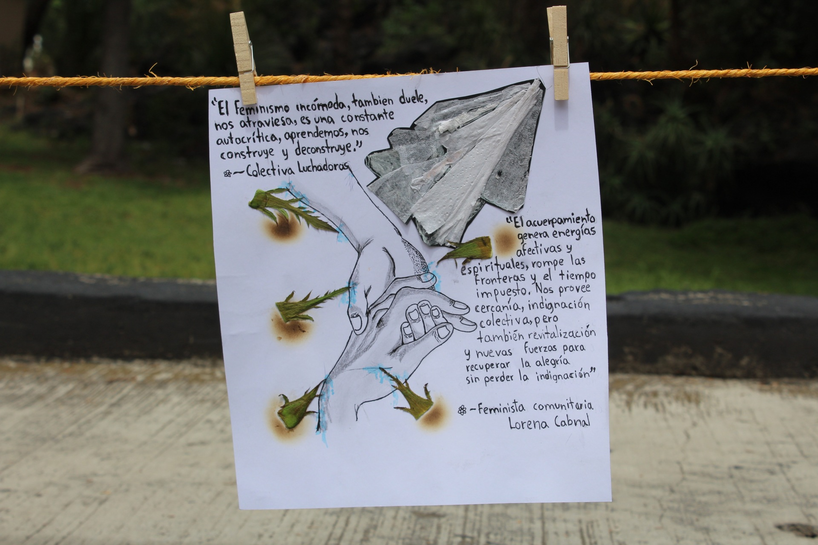 "El feminismo incómoda, tambien duele,
nos atraviesa, es una constante
autocrítica, aprendemos, nos
construye y deconstruye."
~Colectiva Luchadoras
"El acuerpamiento
genera energías
afectivas y
espirituales, rompe las
fronteras y el tiempo
impuesto. Nos provee
cercanía, indignación
colectiva, pero
también revitalización
y nuevas fuerzas para
recuperar la alegría
sin perder la indignación"
~Feminista comunitaria
Lorena Cabnal